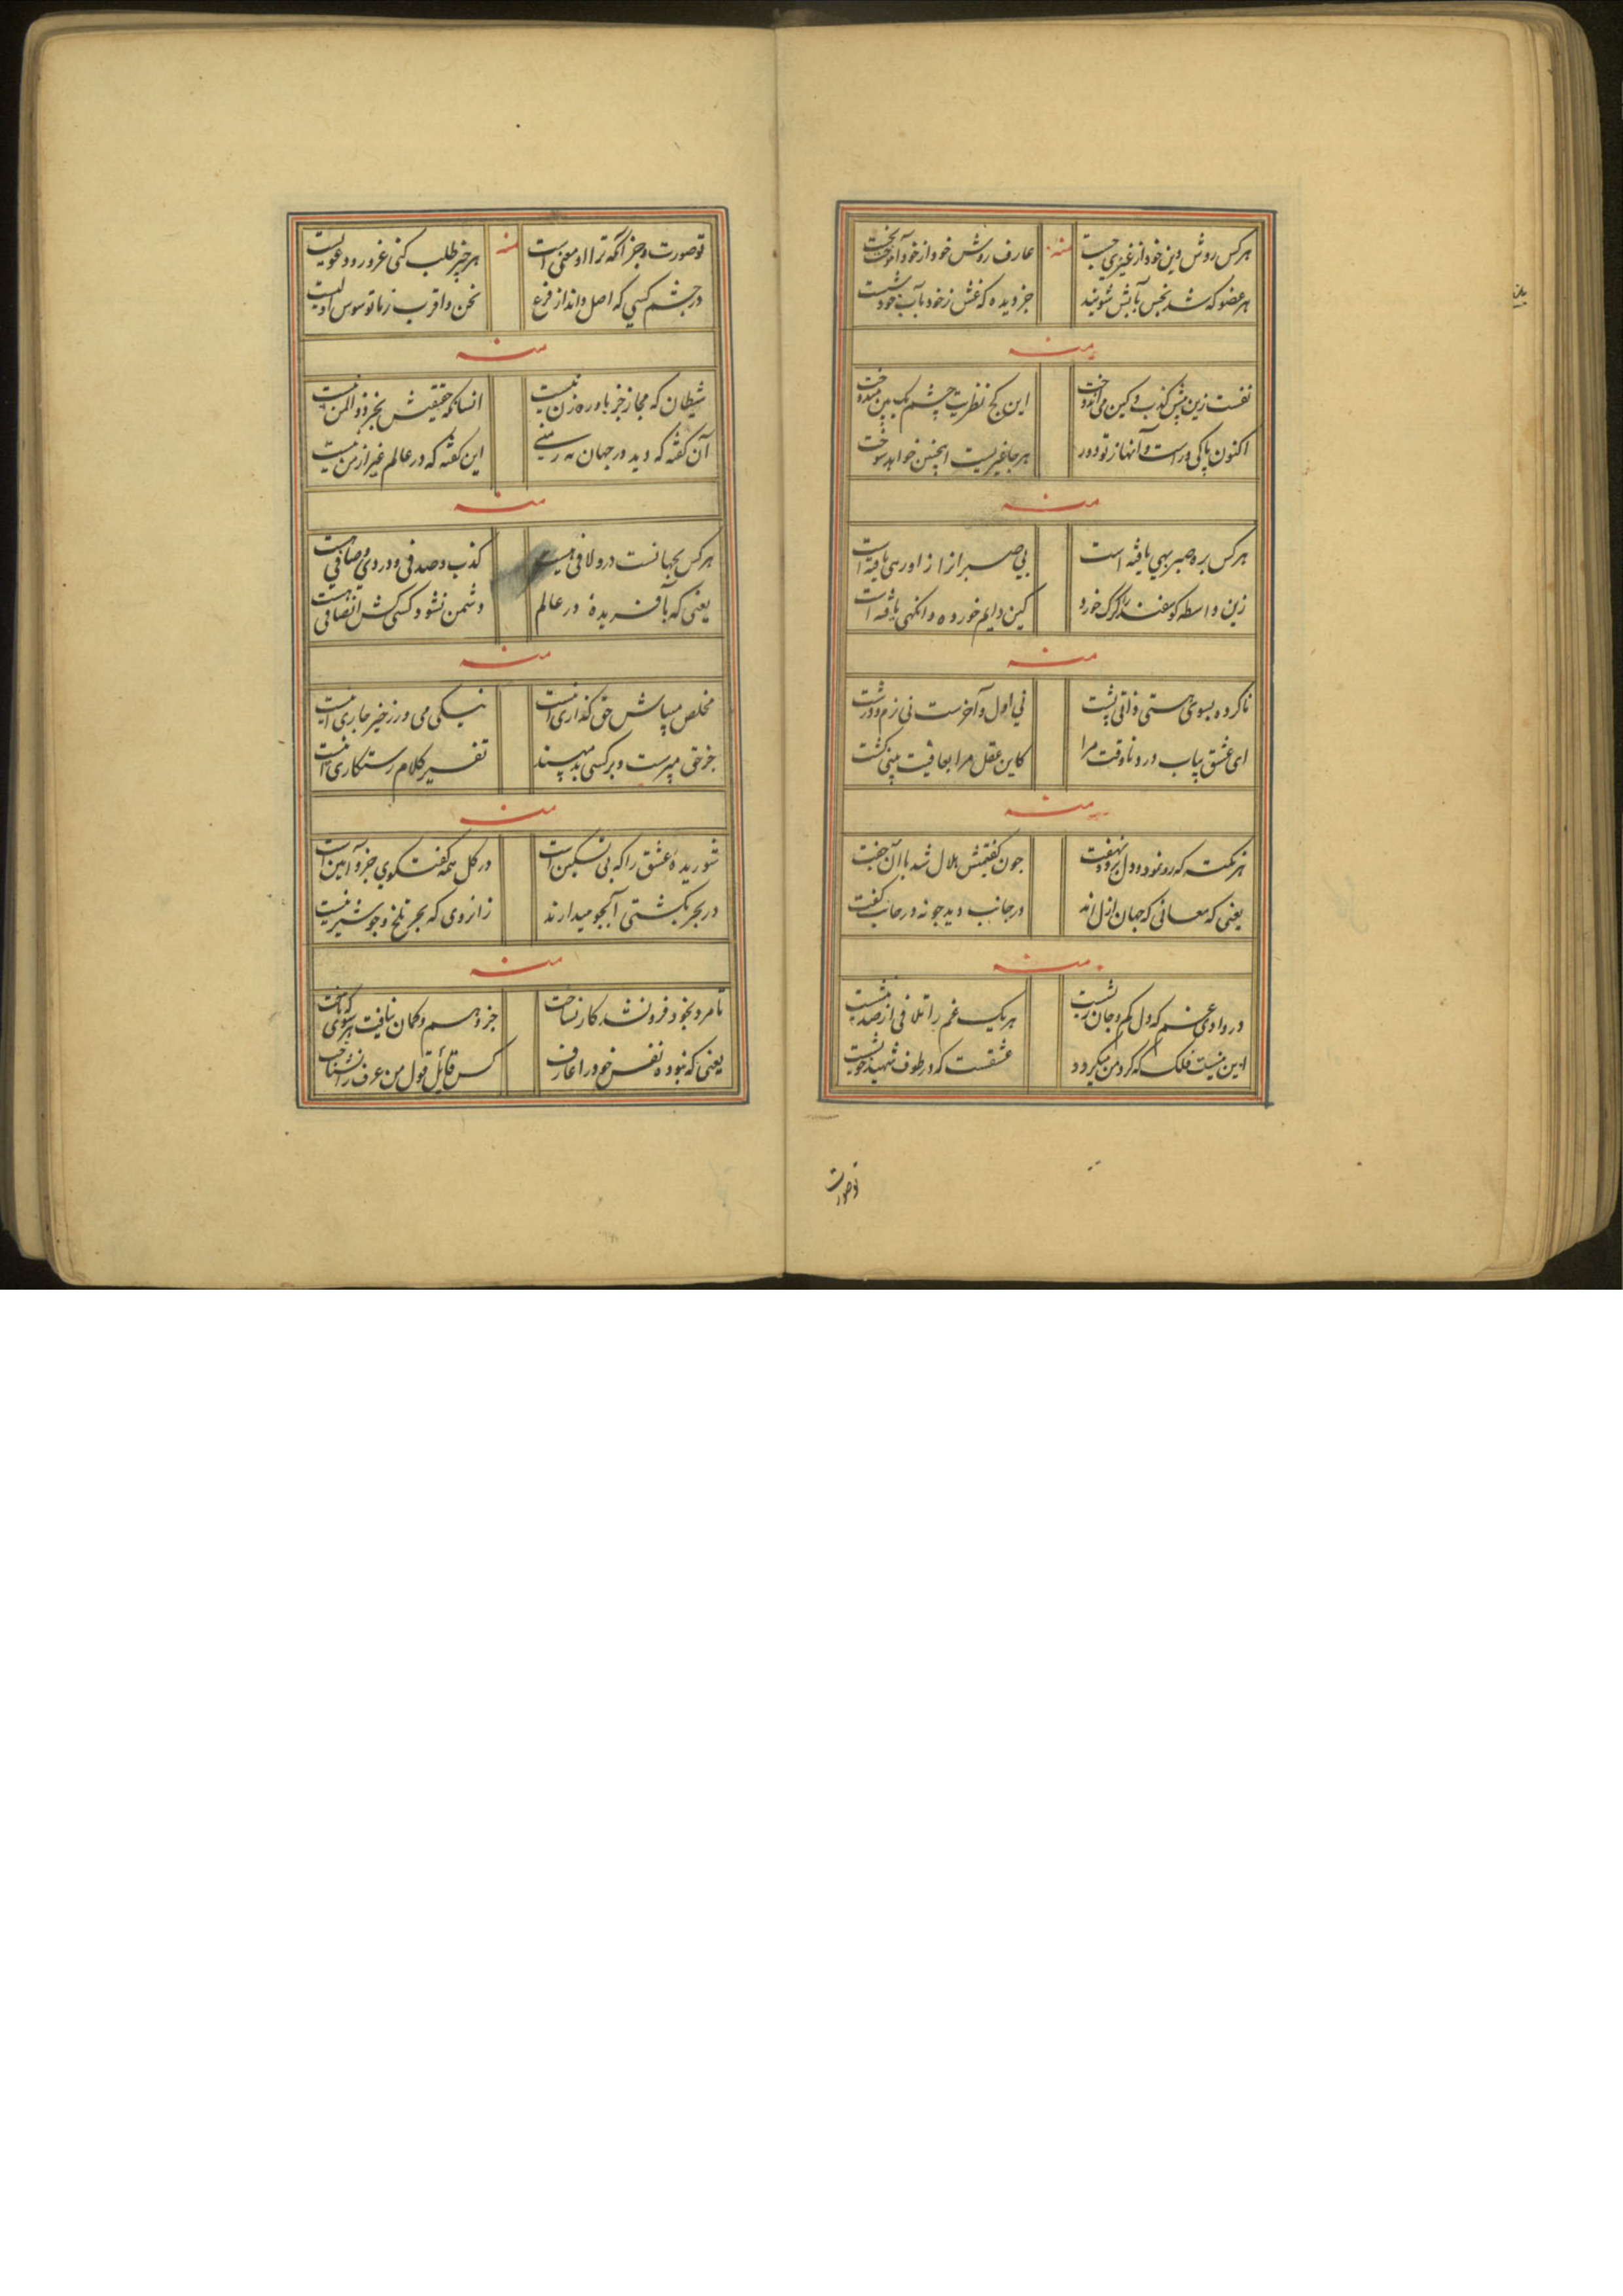 هرکس روش دین خود از غیری جست
منه
عارف روش خود از خود آموخت نخست
هر عضو که شد نجس بآبش شویند
جز دیده که غش ز خود بآب خود شست
منه
نفست زین پیش کذب و کین می اندوخت
این کج نظریت چشم یک بین میدوخت
اکنون پاکی و راست و آنها ز تو دور
هر جا غیریست اینچنین خواهد سوخت
منه
هرکس بره صبر بهی یافته است
بی صبر از
زین واسطه کوسفند را کرک خورد
کین دایم خورده و انکهی یافته است
منه
ناکرده بسوی هستی ذاتی پشت
نی اول و آخرست نی نرم و درشت
ای عشق بیاب درد ناوقت مرا
کاین عقل مرا بعاقبت بینی کشت
منه
هر نکته که رو نمود و دل برد و نهفت
چون کفتمش لال شد با آن جفت
یعنی که معانی که جهان ازل اند
در جانب دید جو نه در جانب کفت
منه
در وادی عشقم که دل کم و جان رست
هر یک غم را تلافی از صد
این نیست فلک که کرد من میکردد
عشقست که در طوف شهید خویشست
توصورت
تو صورت و جز آنکه ترا او معنی است
منه
هر چیز طلب کنی غرور و دعویست
در چشم کسی که اصل داند از فرع
نحن و اقرب ز ما توسوس اولیست
منه
شیطان که مجاز جز باو ره زن نیست
انسانکه حقیقتش بجز ذوالمن نیست
آن کفته که دید در جهان نه
این کفته که در عالم غیر از من نیست
منه
هرکس بجهانست درو لافی هست
کذب و صدقی و دردی و صافی هست
یعنی که بآفریده در عالم
دشمن نشود کسی کش انصافی هست
منه
مخلص میباش حق کذاری اینست
نیکی می ورز خیر جاری اینست
جز حق مپرست و بر کسی بد مپسند
تفسیر کلام رستکاری اینست
منه
شوریده عشق را که بی تسکین است
در کل همه کفت و کوی جزو آیین است
در بحر بکشتی آبجو میدارند
زانروی که بحر تلخ و جو شیرینست
منه
تا مرد بخود فرو نشد کار نساخت
جز وهم و کمان نیافت هر سوی که تاخت
یعنی که نبوده نفس خود را عارف
کس قایل قول من عرف را نشناخت